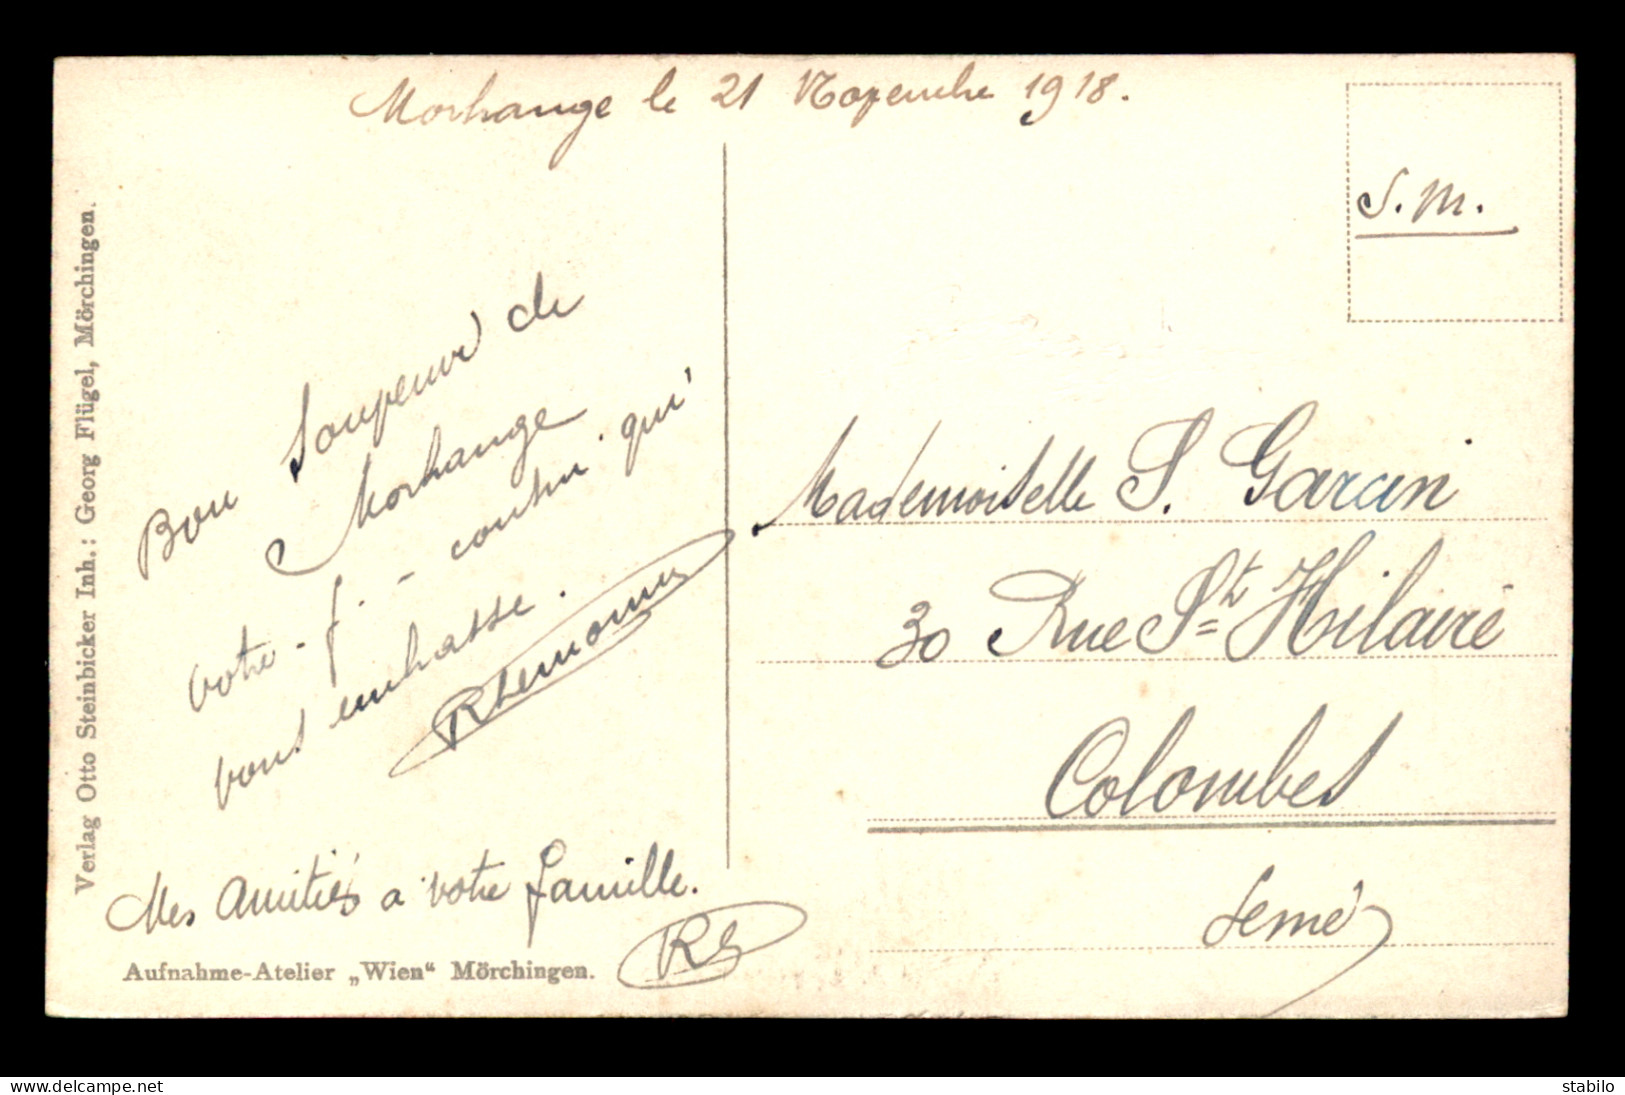 Morhange le 21 Novembre 1918.
S. M.
Bon Souvenir de
Morhange
votre f. - cousin qui
vous embrasse.
Mes Amitiés a votre famille.
RG
Mademoiselle S. Garcin
30 Rue St Hilaire
Colombes
Seine
Verlag Otto Steinbicker Inh.: Georg Flügel, Mörchingen.
Aufnahme-Atelier „Wien“ Mörchingen.
www.delcampe.net
stabilo